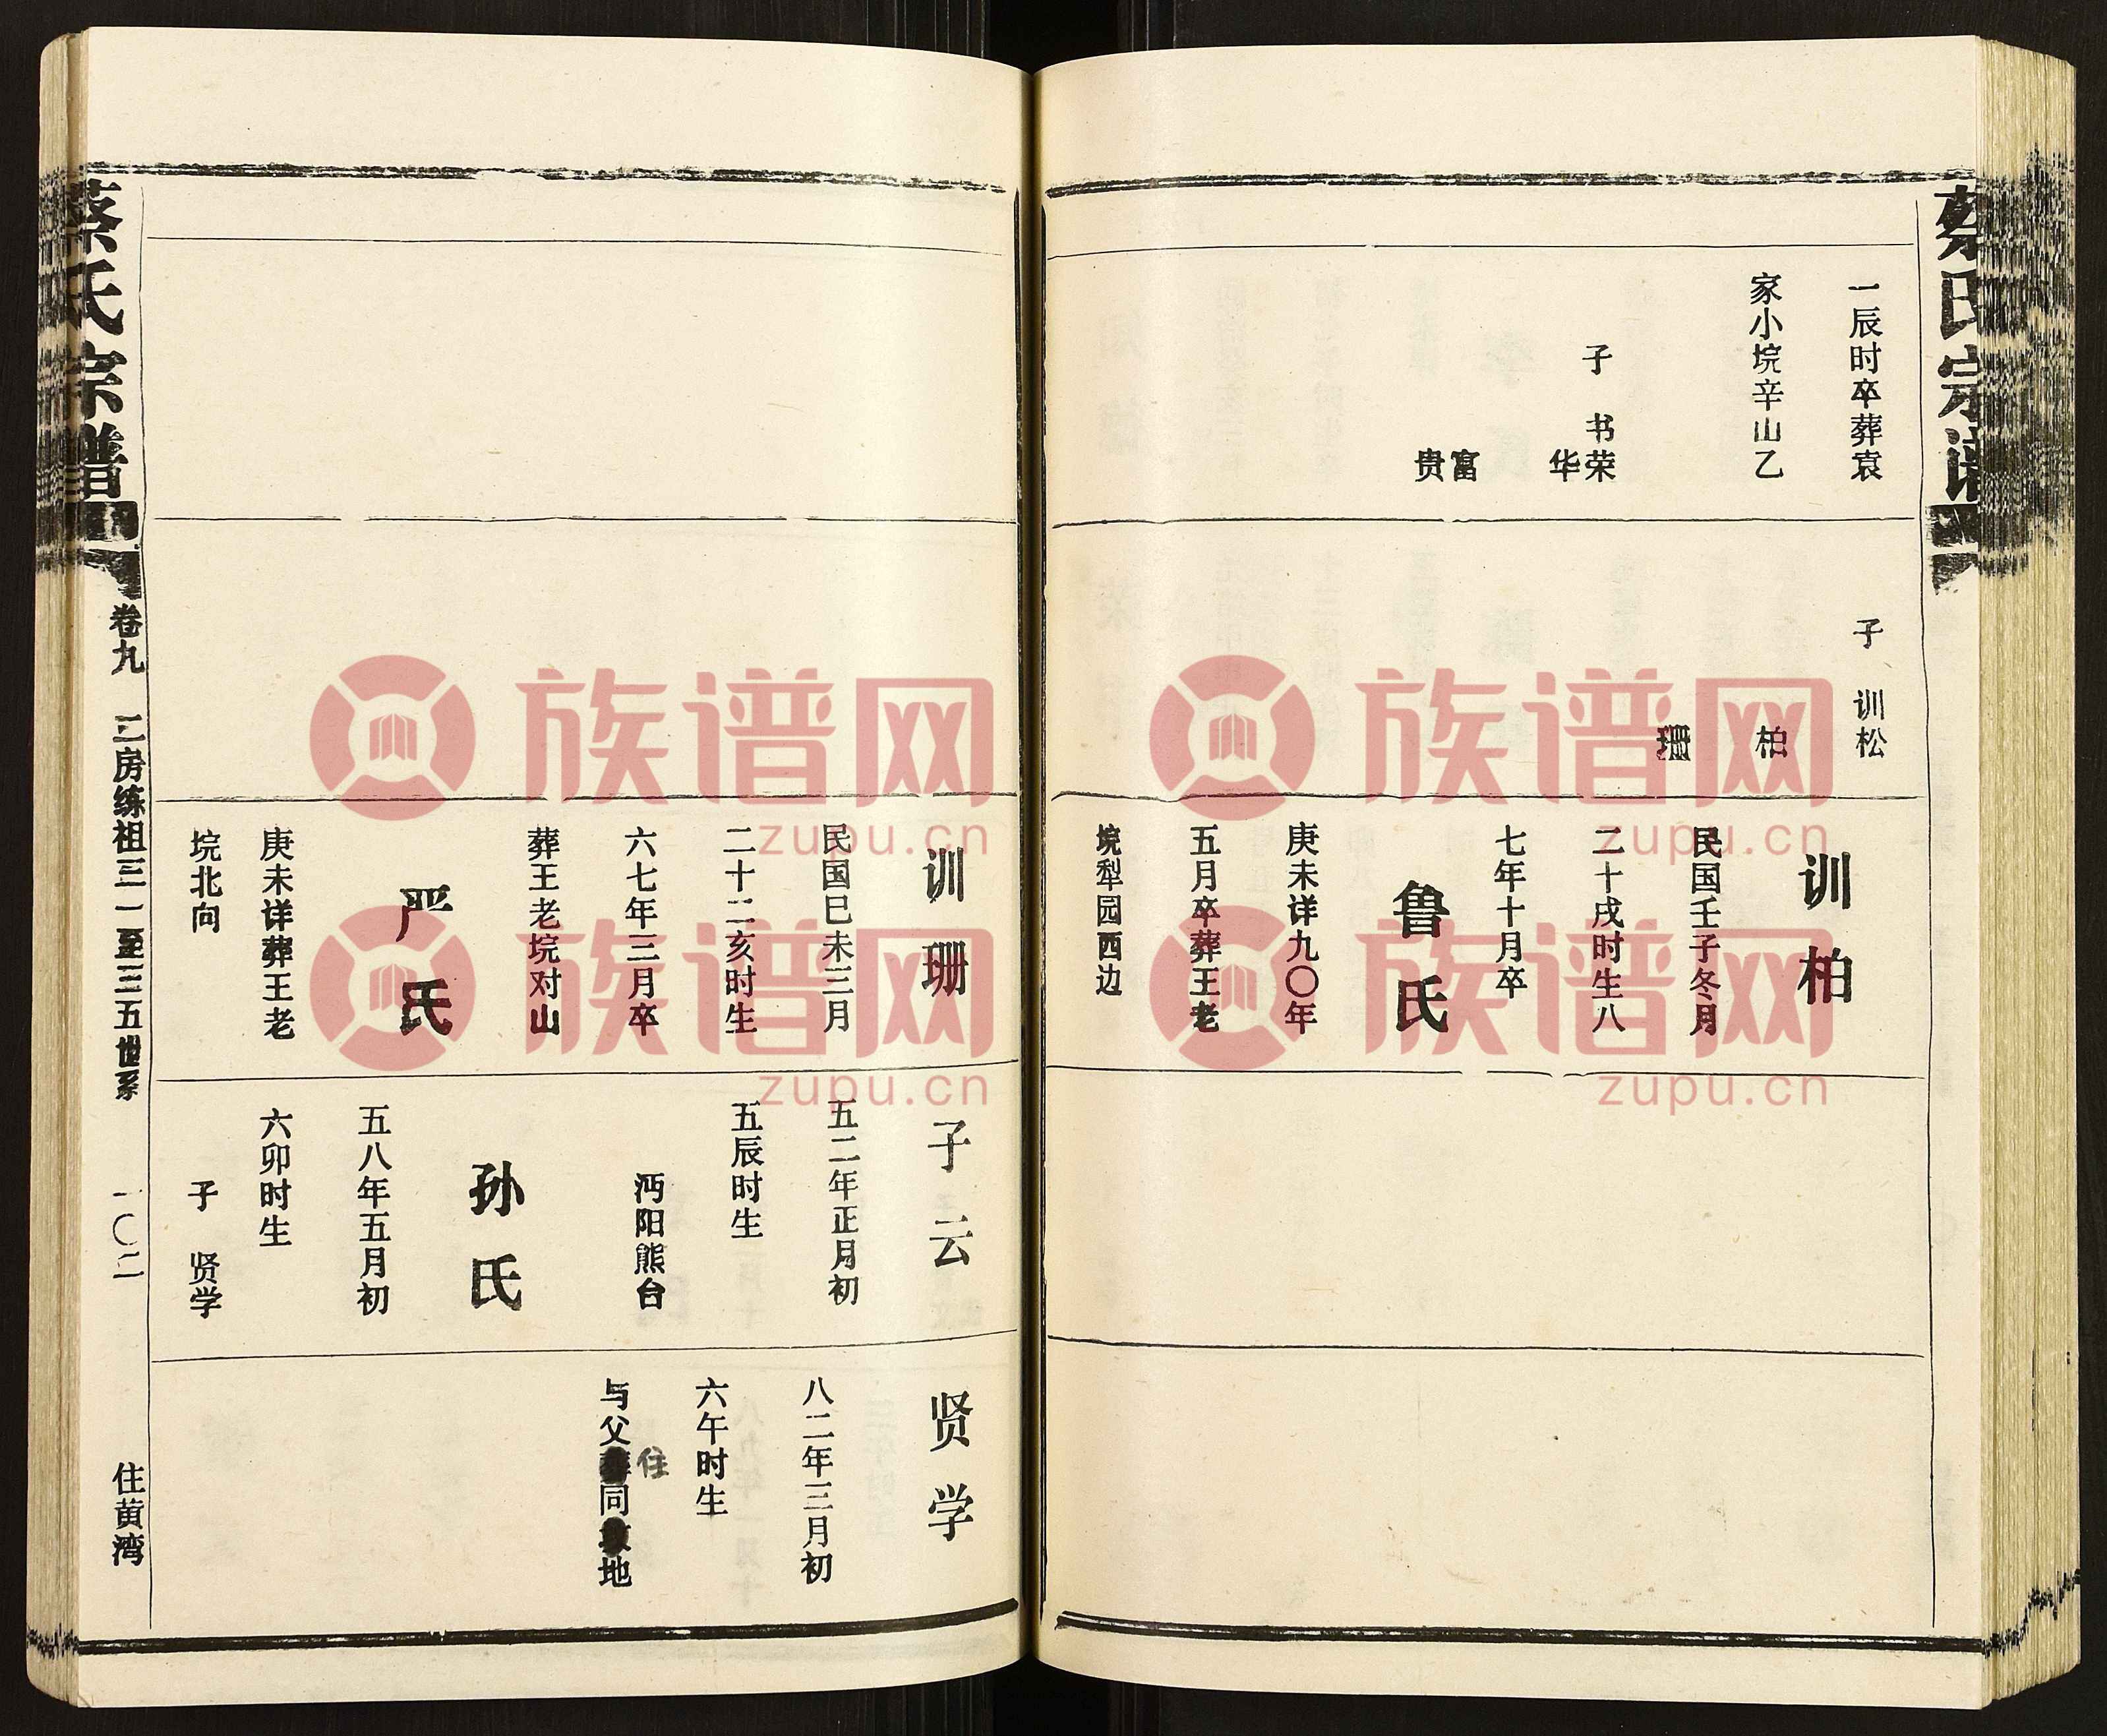 蔡氏宗谱
一辰时卒葬袁
家小垸辛山乙
子 书荣
华
富
贵
子 训松
柏
珊
训柏
民国壬子冬月
二十戌时生八
七年十月卒
鲁氏
庚未详九〇年
五月卒葬王老
垸犁园西边
训珊
民国巳未三月
二十二亥时生
六七年三月卒
葬王老垸对山
严氏
庚未详葬王老
垸北向
子云
五二年正月初
五辰时生
沔阳熊台
孙氏
五八年五月初
六卯时生
子 贤学
贤学
八二年三月初
六午时生
住
与父葬同地
蔡氏宗谱
卷九 二房练祖三一至三五世系 一〇二 住黄湾
族谱网
zupu.cn
族谱网
zupu.cn
族谱网
zupu.cn
族谱网
zupu.cn